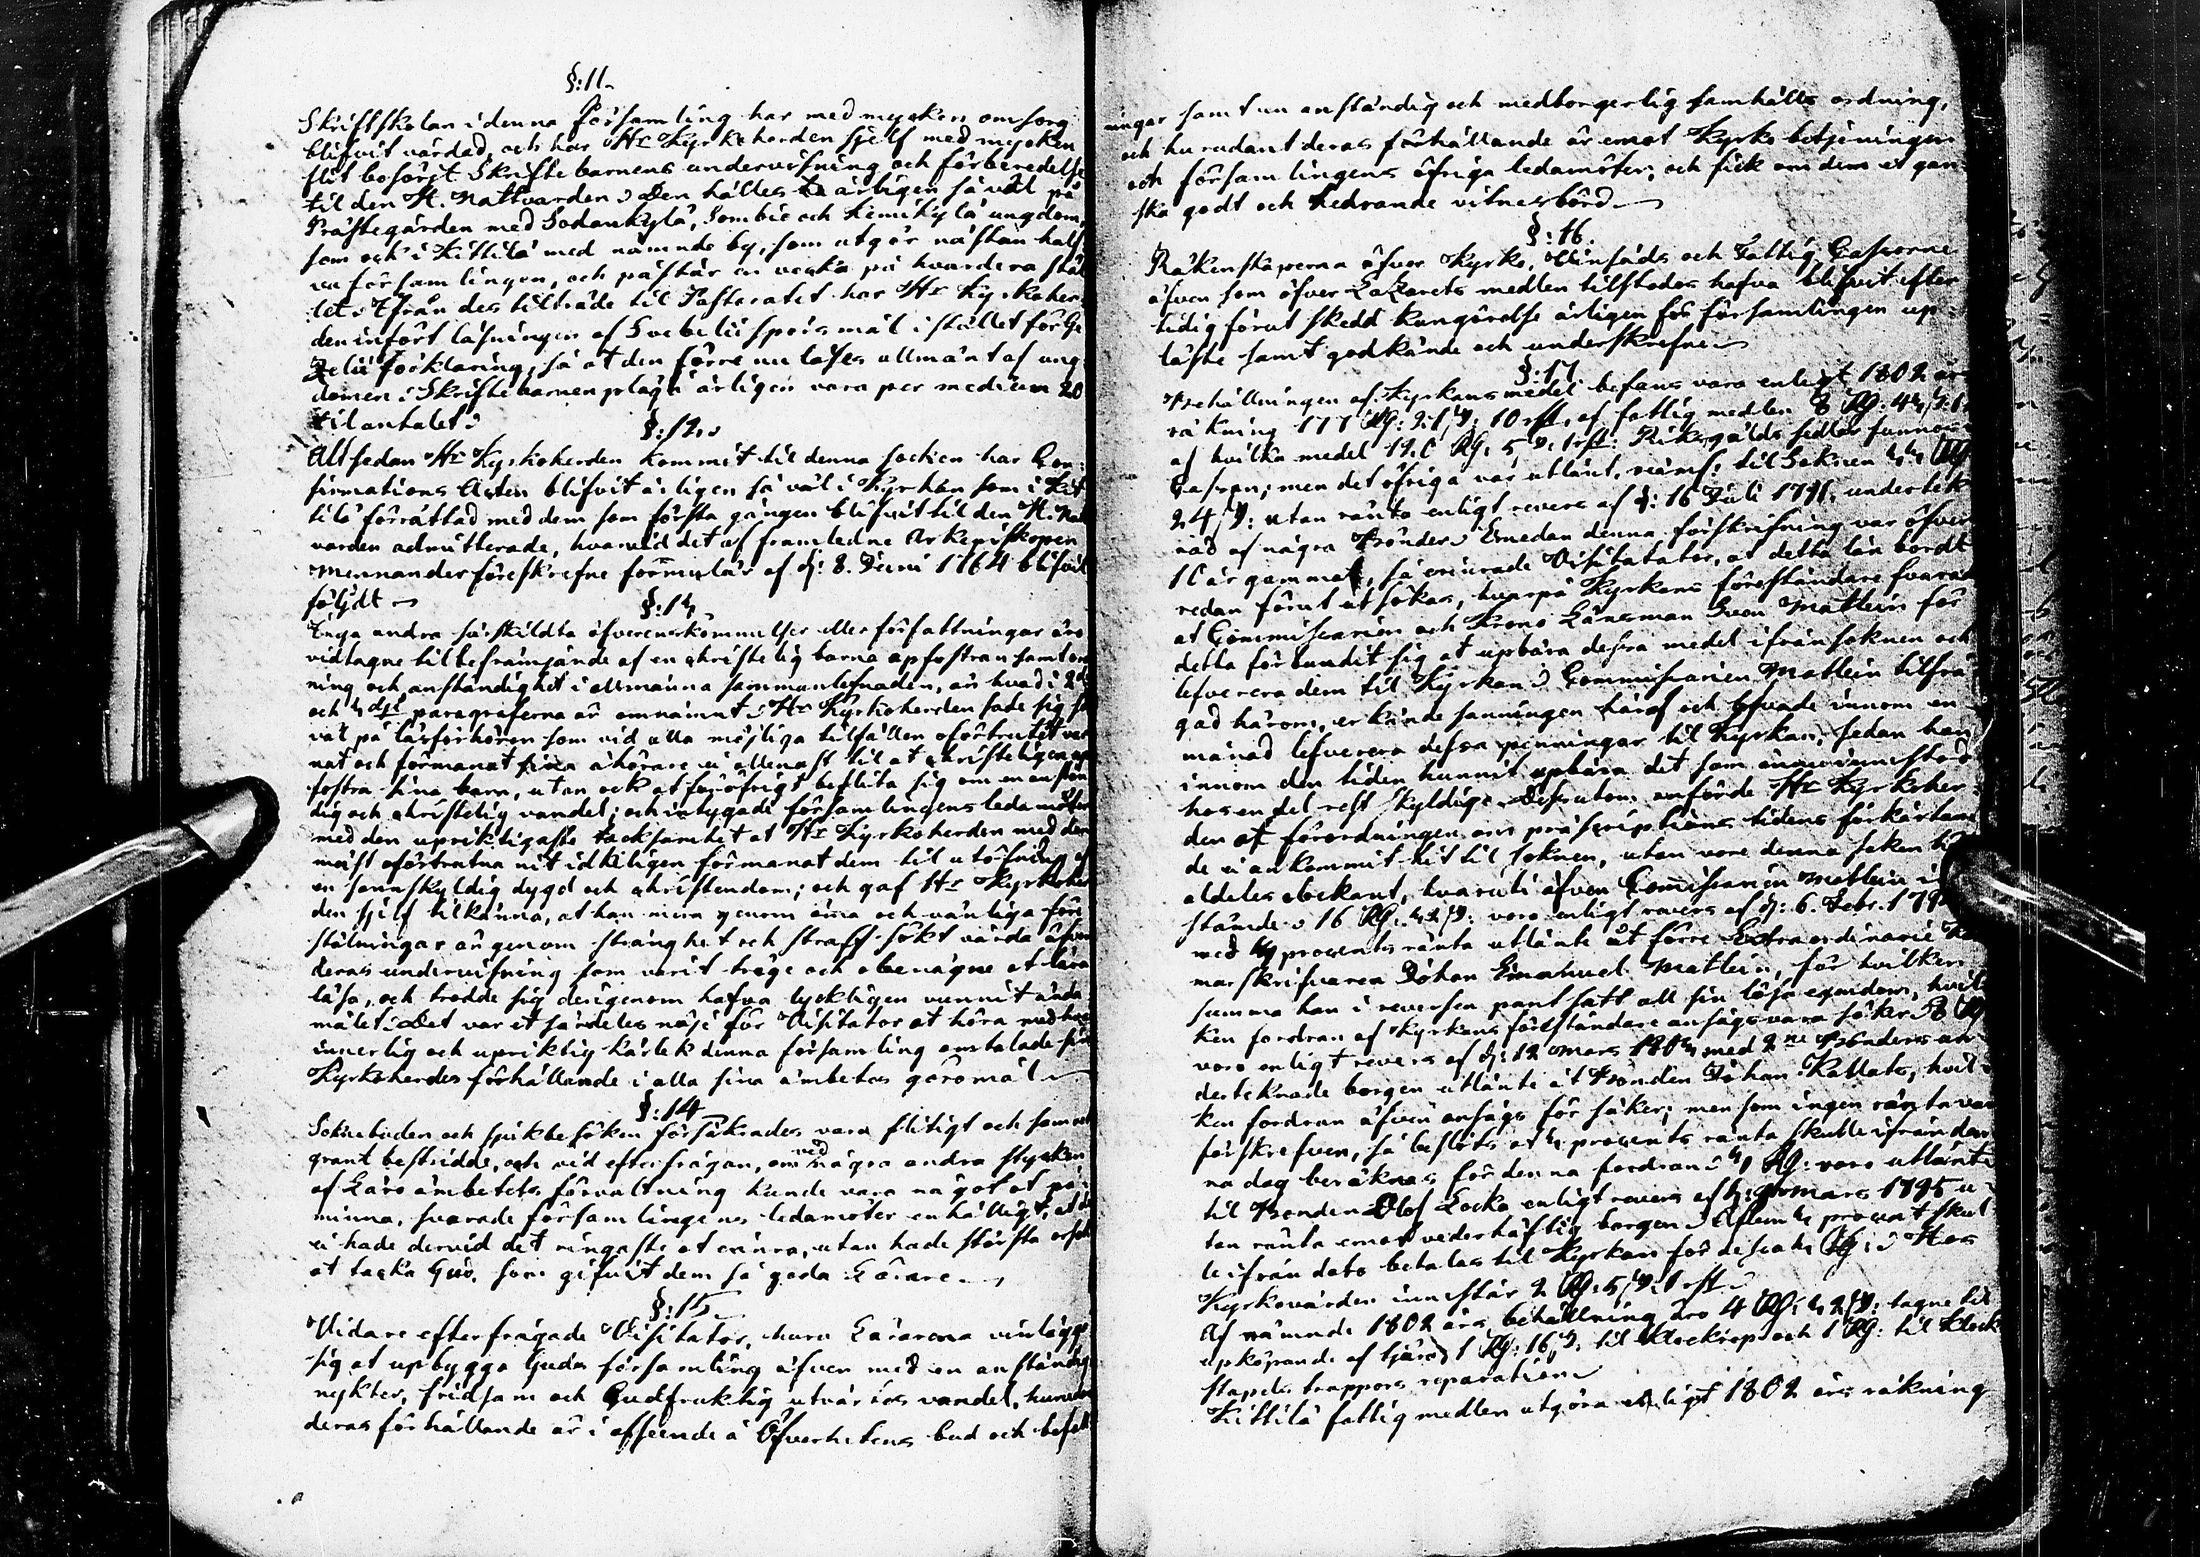 §: 11.
Skriftskolan i denna Församling har med mycken omsorg
blifvit vårdad, och har Hr Kyrkoherden sjelf med mycken
flit besörgt Skriftebarnens undervisning och förberedelse
til den H. Nattvarden. Den hålles årligen så väl på
Prästegården med Sodankylä, Sombio och Kemikylä ungdom,
som ock i Kittilä med nämnde by, som utgör nästan half
va församlingen, och påstår en vecka på hvardera stäl
let. Ifrån des tilträde til Pastoratet har Hr Kyrkoher
den infört läsningen af Svebelii spörsmål i stället för Ge
zelii förklaring, så at den förre nu läses allmänt af ung
domen. Skriftebarnen plåga årligen vara per medium 20
til antalet.
§: 12.
Alt sedan Hr Kyrkoherden kommit til denna socken har Con
firmations Acten blifvit årligen så väl i Kyrkan som i Kit
tilä förrättad med dem som första gången blifvit til den H. Nat
varden admitterade, hvarvid det af framledne Arkepiskopen
Mennander föreskrefne formulär af d: 8. Juni 1764 blifvit
följdt
§: 13.
Inga andra särskildta öfverenskommelser eller författningar äro
vidtagne til befrämjande af en christelig barna upfostran samt ord
ning och anständighet i allmänna sammanlefnaden, än hvad i 2dra
och 3dje paragraferna är omnämnt. Hr Kyrkoherden sade sig så
väl på läsförhören som vid alla möjliga tilfällen oförtrutit var
nat och förmanat sina åhörare ei allenast til at christeligen up
fostra sina barn, utan ock at för öfrigt beflita sig om en anstän
dig och christelig vandel; och intygade församlingens ledamöter
med den upriktigaste tacksamhet at Hr Kyrkoherden med den
mäst oförtrutna nit idkeligen förmanat dem til utöfning af
en sannskyldig dygd och christendom; och gaf Hr Kyrkoher
den sjelf tilkänna, at han mera genom ömma och vänliga före
stälningar än genom stränghet och straff sökt vårda äfven
deras undervisning som varit tröge och obenägne at lära
läsa, och trodde sig derigenom hafva lyckligen vunnit ända
målet. Det var et särdeles nöje för Visitator at höra med hvad
innerlig och upriktig kärlek denna församling omtalade sin
Kyrkoherdes förhållande i alla sina ämbetes göromål
§: 14
Sokne buden och sjukbesöken försäkrades vara flitigt och samvet
grant bestridde, och vid efterfrågan, om vid några andra stycken
af Läro ämbetets förvaltning kunde vara något at på
minna, svarade församlingens ledamöter enhälligt, at de
ei hade dervid det ringaste at ärnra, utan hade största orsak
at tacka Gud, som gifvit dem så goda Lärare.
§: 15.
Vidare efterfrågade Visitator, huru Lärarena vinlägga
sig at upbygga Guds församling äfven med en anständig
nykter, fridsam och Gudfruktig utvärtes vandel, hurudant
deras förhållande är i afseende å Öfverhetens bud och befal
ningar samt en anständig och medborgerlig samhälls ordning,
och hurudant deras förhållande är emot Kyrko betjeningen
och församlingens öfriga ledamöter; och fick om dem et gan
ska godt och hedrande vitnesbörd
§: 16.
Räkenskaperna öfver Kyrko, Vinsäds och Fattig Cassorne
äfven som öfver Lazarets medlen tilstodos hafva blifvit efter
tidig förut skedd kungörelse årligen för församlingen up
läste samt godkände och underskrefne
§: 17
Behållningen af Kyrkans medel befans vara enligt 1802 års
räkning 177 Rd: 21 s: 10 rst, af fattig medlen 8 Rd:
af hvilka medel Rd: 5 s: 1 rst: Riksgälds sedlar funnos i
Cassan; men det öfriga var utlänt, nämt: til Soknen Rd
24 s: utan ränta enligt revers af d: 16 Juli undertek
nad af några Bönder. Emedan denna förskrifning var öfver
10 år gammal, så erinrade Visitator, at detta lån bordt
redan förut utsökas, hvarpå Kyrkans föreståndare svarade
at Commissarien och Krono Länsman Sven Matlein för
detta förbundit sig at upbära dessa medel ifrån soknen och
lefverera dem til Kyrkan. Commissarien Matlein tilfrå
gad härom, erkände sanningen häraf och lofvade innom en
månad lefverera dessa penningar til Kyrkan, sedan han
innom den tiden hunnit upbära det som ännu innestod
hos en del rest skyldige. Dessutom anförde Hr Kyrkoher
den at förordningen om præscriptions tidens förkortan
de ei ankommit hit til soknen, utan vore denna saken här
aldeles obekant, hvaruti äfven Commissarien Matlein in
stämde. 16 Rd: 32 s: voro enligt revers af d: 6. Febr.
med procents ränta utlånte åt förre Extraordinarie
marskrifvaren Johan Emanuel Matlein, för hvilken
summa han i reversen pantsatt all sin lösa egendom, hvil
ken fordran af Kyrkans föreståndare ansågs vara säker. 8 Rd
voro enligt revers af d: 12 Mars med 2ne Bönders un
derteknade borgen utlånte åt Bonden Johan Kallats, hvil
ken fordran äfven ansågs för säker; men som ingen ränta var
förskrefven, så beslöts at procents ränta skulle ifrån den
na dag beräknas för denna fordran. Rd: voro utlånte
til Bonden Olof Locka enligt revers af d: Mars 1795 u
tan ränta emot vederhäftig borgen. Äfven procent skul
le ifrån dato betalas til Kyrkan för dessa Rd: Hos
Kyrkovärden innestår 2 Rd: 5 s: 1 rst
Af nämnde 1802 års behållning äro 4 Rd: 32 s: tagne til
upköpande af tjära, 1 Rd: 16 s: til klockrep och 1 Rd: til klock
stapels trappors reparation
Kittilä fattig medlen utgöra enligt 1802 års räkning